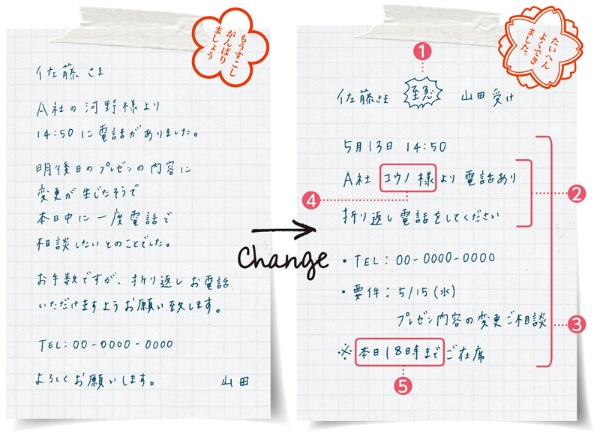 もうすこし
がんばり
ましょう
佐藤さま
A社の河野様より
14:50に電話がありました。
明後日のプレゼンの内容に
変更が生じたそうで
本日中に一度電話で
相談したいとのことでした。
お手数ですが、折り返しお電話
いただけますようお願い致します。
TEL:00-0000-0000
よろしくお願いします。 山田
Change
たいへん
よくでき
ました。
1
佐藤さま 至急 山田受け
5月13日 14:50
A社 コウノ様より電話あり
2
4
折り返し電話をしてください
・TEL:00-0000-0000
・要件:5/15(水)
プレゼン内容の変更ご相談
3
※本日18時までご在席
5